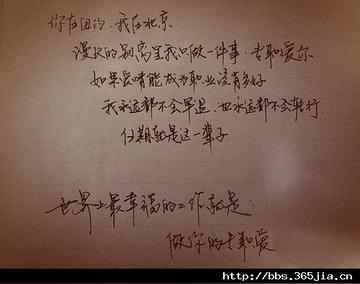 你在国内，我在北京
漫长的别离里我只做一件事：专职爱你
如果爱情能成为职业没有多好
我永远都不会早退，也永远都不会转行
任期就是这一辈子
世界上最幸福的工作就是：
做你的专职爱
http://bbs.365jia.cn